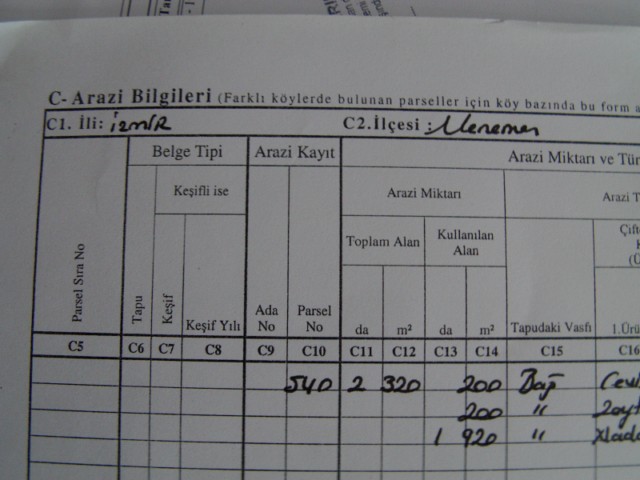 C- Arazi Bilgileri (Farklı köylerde bulunan parseller için köy bazında bu form a
C1. İli: İzmİR C2.İlçesi : Menemen
Belge Tipi Arazi Kayıt Arazi Miktarı ve Tür
Keşifli ise Arazi Miktarı Arazi T
Toplam Alan Kullanılan Alan Çift
Parsel Sıra No Tapu Keşif Keşif Yılı Ada No Parsel No da m² da m² Tapudaki Vasfı 1.Ürü
C5 C6 C7 C8 C9 C10 C11 C12 C13 C14 C15 C16
540 2 320 200 Bağ Cevi
200 " Zeyt
1 920 "